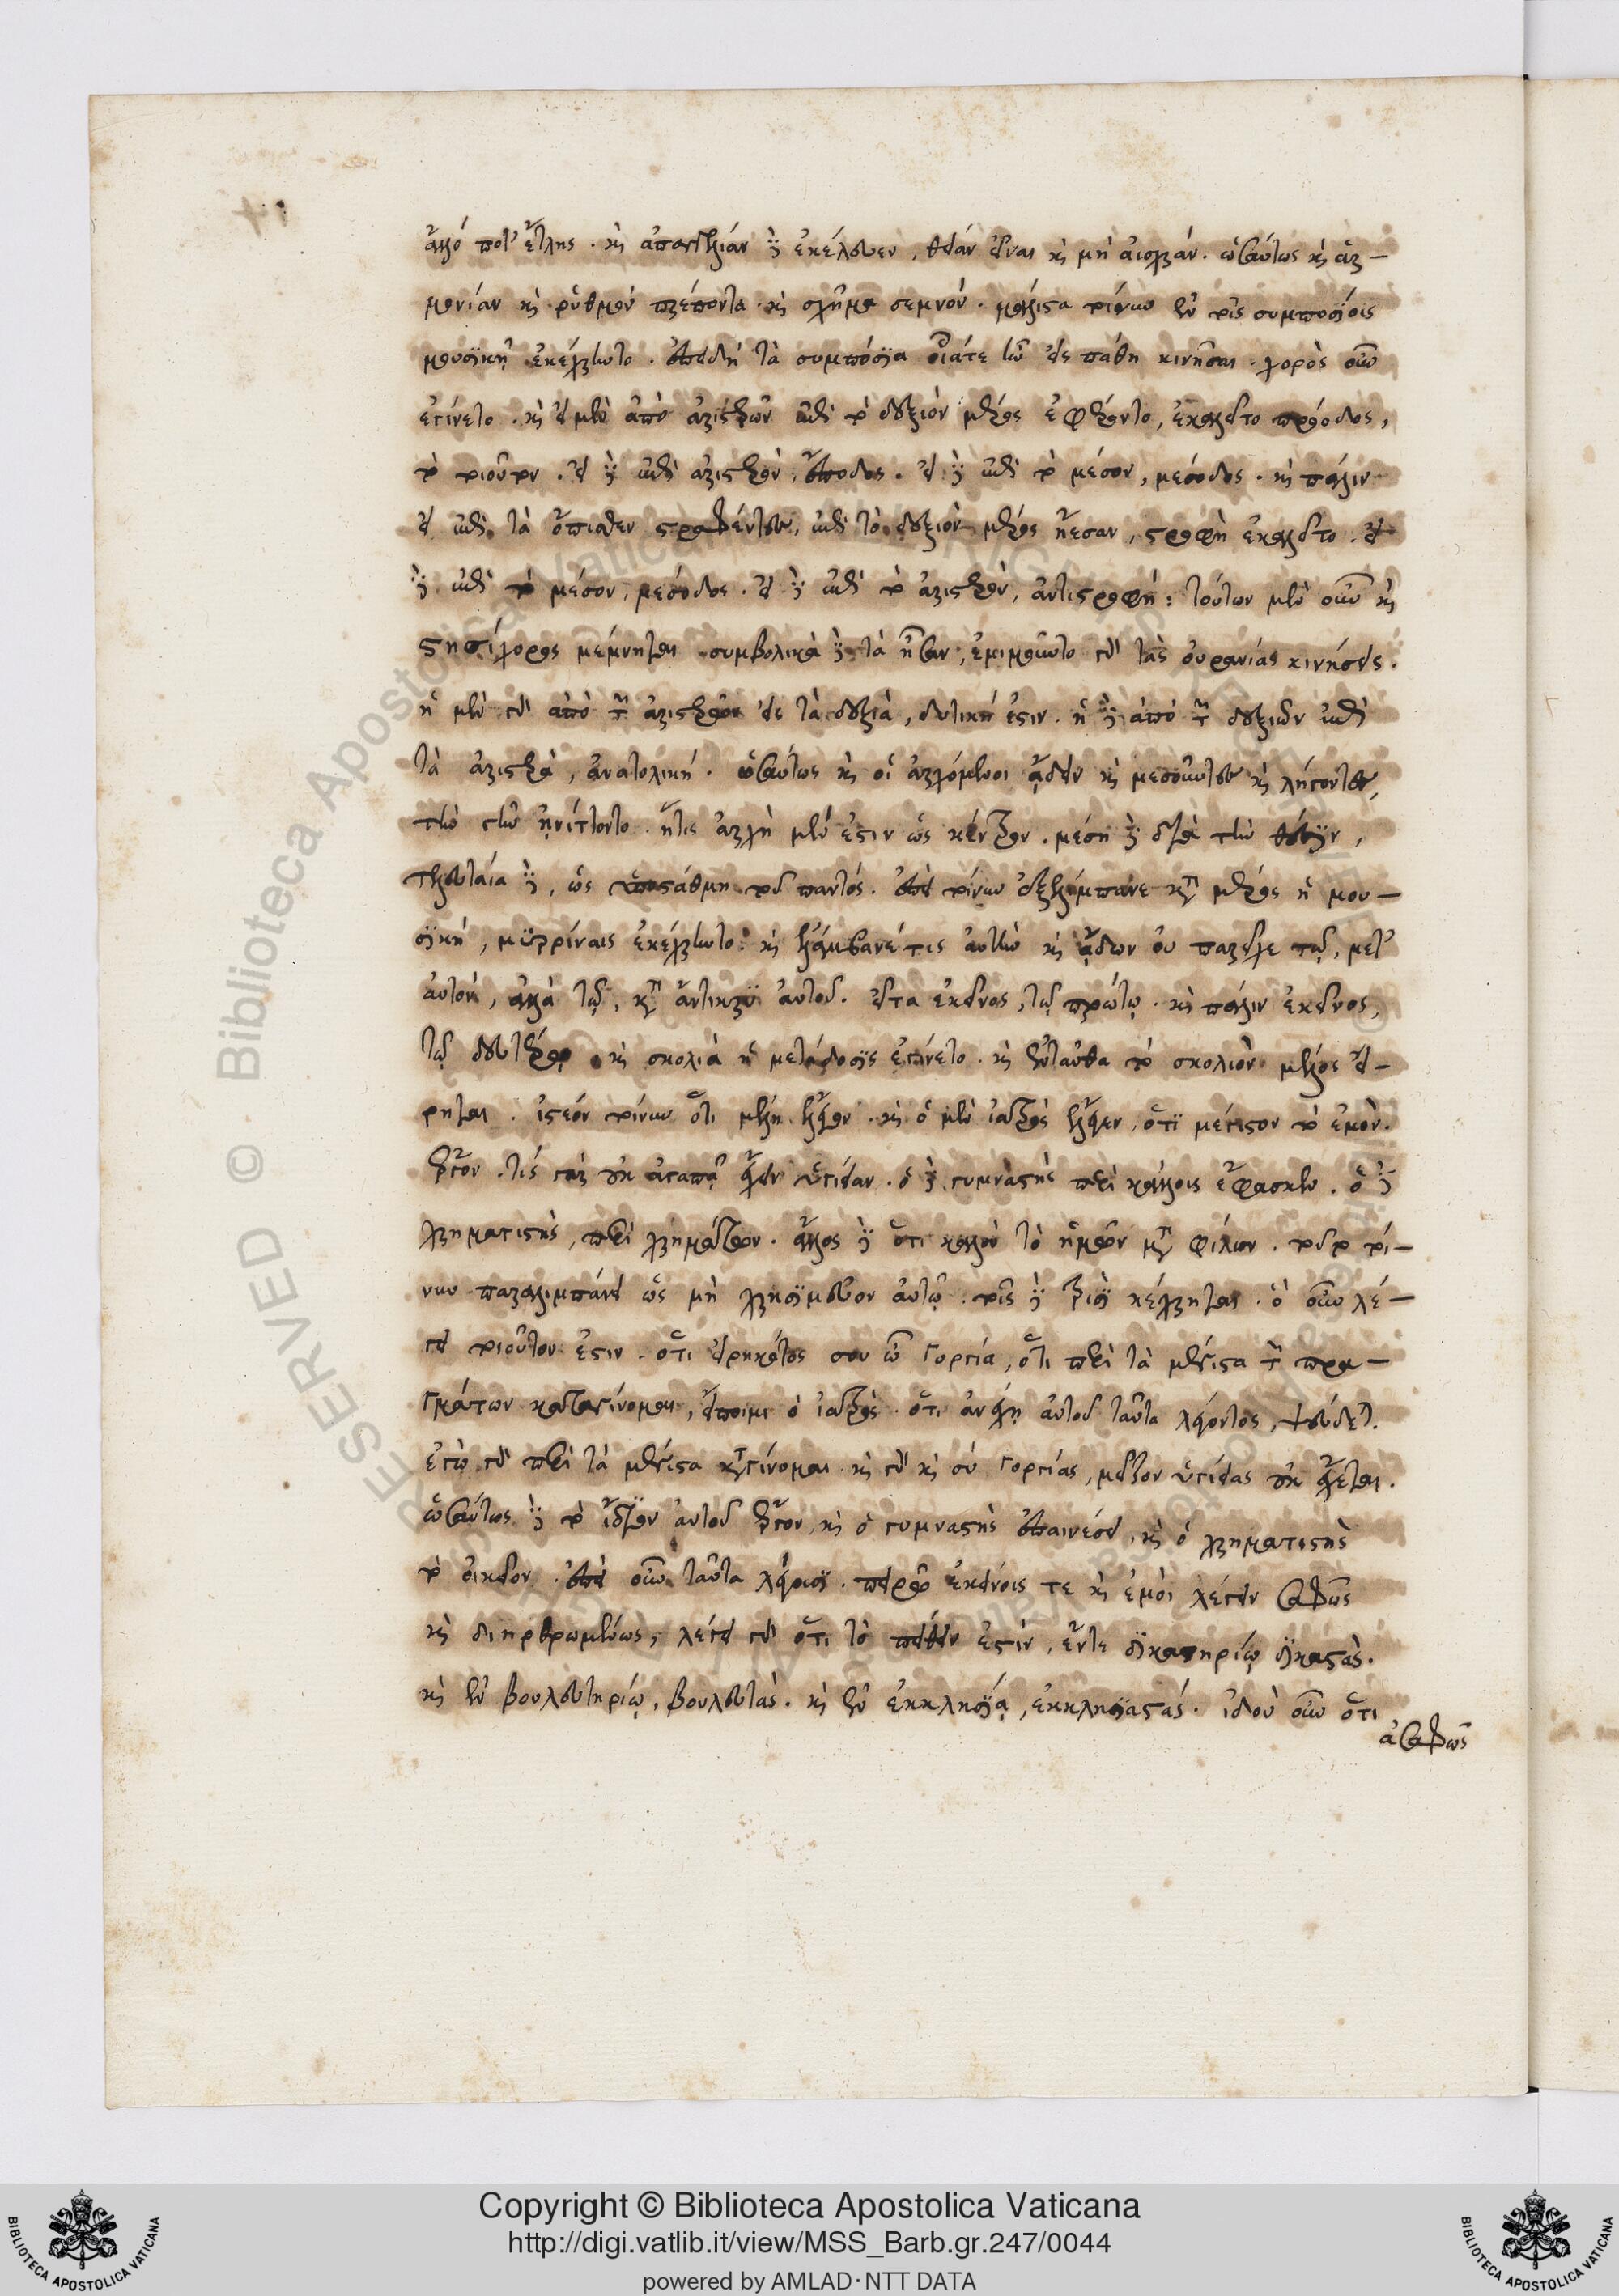 ἄλλό ποτ' εἴπῃς. καὶ ἀπαγγελίαν δὲ ἐκέλευεν, θείαν εἶναι καὶ μὴ αἰσχράν. ὡσαύτως καὶ ἁρ-
μονίαν καὶ ῥυθμὸν πρέποντα. καὶ σχῆμα σεμνόν. μάλιστα τοίνυν ἐν τοῖς συμποσίοις
μουσικῇ ἐκέχρηντο. ἐπειδὴ τὰ συμπόσια οἷάτε ἦν εἰς πάθη κινῆσαι. χορὸς οὖν
ἐγίνετο. καὶ εἰ μὲν ἀπὸ ἀριστερῶν ἐπὶ τὸ δεξιὸν μέρος ἐφέροντο, ἐκαλεῖτο πρόοδος,
τὸ τοιοῦτον. εἰ δὲ ἐπὶ ἀριστερὸν, ἔποδος. εἰ δὲ ἐπὶ τὸ μέσον, μεσόδος. καὶ πάλιν
εἰ ἐπὶ τὰ ὄπισθεν στραφέντες, ἐπὶ τὸ δεξιὸν μέρος ᾔεσαν, στροφὴ ἐκαλεῖτο. εἰ
δὲ ἐπὶ τὸ μέσον, μεσόδος. εἰ δὲ ἐπὶ τὸ ἀριστερὸν, ἀντιστροφή: τούτων μὲν οὖν καὶ
στησίχορος μέμνηται συμβολικὰ δὲ τὰ ἦσαν, ἐμιμοῦντο γὰρ τὰς οὐρανίας κινήσεις.
ἡ μὲν γὰρ ἀπὸ τῶν ἀριστερῶν εἰς τὰ δεξιὰ, δυτική ἐστιν. ἡ δὲ ἀπὸ τῶν δεξιῶν ἐπὶ
τὰ ἀριστερὰ, ἀνατολική. ὡσαύτως καὶ οἱ ἀρχόμενοι ᾄδειν καὶ μεσοῦντες καὶ λήγοντες,
τὴν γῆν ᾐνίττοντο. ἥτις ἀρχὴ μὲν ἐστιν ὡς κέντρον. μέση δὲ διὰ τὴν θέσιν,
τελευταία δὲ, ὡς ὑποστάθμη τοῦ παντός. ἐπεὶ τοίνυν ἐξελίμπανε κατὰ μέρος ἡ μου-
σική, μυρρίναις ἐκέχρηντο. καὶ ἐλάμβανέ τις αὐτὴν καὶ ᾄδων οὐ παρεῖχε τῷ, μετ'
αὐτόν, ἀλλὰ τῷ, κατ' ἀντικρὺ αὐτοῦ. εἶτα ἐκεῖνος, τῷ πρώτῳ. καὶ πάλιν ἐκεῖνος,
τῷ δευτέρῳ. καὶ σκολιὰ ἡ μετάδοσις ἐγίνετο. καὶ ἐνταῦθα τὸ σκολιὸν μέλος εἴ-
ρηται. ἰστέον τοίνυν ὅτι μέλη ἔλεγον. καὶ ὁ μὲν ἰατρὸς ἔλεγεν, ὅτι μέγιστον τὸ ἐμὸν
ἔργον. τίς γὰρ οὐκ ἀγαπᾷ ἔχειν ὑγίειαν. ὁ δὲ γυμναστὴς περὶ κάλλους ἔφασκεν. ὁ δὲ
χρηματιστὴς, περὶ χρημάτων. ἄλλος δὲ ὅτι καλὸν τὸ ἡβῶν μετὰ φίλων. τοῦτο τοί-
νυν παραλιμπάνει ὡς μὴ χρησιμεῦον αὐτῷ. τοῖς δὲ τρισὶ κέχρηται. ὁ οὖν λέ-
γει τοιοῦτον ἐστιν. ὅτι εἰρηκότος σου ὦ γοργία, ὅτι περὶ τὰ μέγιστα τῶν πρα-
γμάτων καταγίνομαι, εἴποιμι ὁ ἰατρὸς. ὅτι ἀνέχῃ αὐτοῦ ταῦτα λέγοντος, ψεύδεται.
ἐγὼ γὰρ περὶ τὰ μέγιστα καταγίνομαι. καὶ γὰρ καὶ σὺ γοργίας, μεῖζον ὑγιείας οὐκ ἔχεται.
ὡσαύτως δὲ τὸ ἴδιον αὐτοῦ ἔργον, καὶ ὁ γυμναστὴς ἐπαινέσει, καὶ ὁ χρηματιστὴς
τὸ οἰκεῖον. ἐπεὶ οὖν ταῦτα λέγουσι. πειρῶ ἐκείνοις τε καὶ ἐμοὶ λέγειν σαφῶς
καὶ διηρθρωμένως, λέγει γὰρ ὅτι τὸ πείθειν ἐστὶν, ἔντε δικαστηρίῳ δικαστὰς.
καὶ ἐν βουλευτηρίῳ, βουλευτὰς. καὶ ἐν ἐκκλησίᾳ, ἐκκλησιαστάς. ἰδοὺ οὖν ὅτι
ἀσαφῶς
Copyright © Biblioteca Apostolica Vaticana
http://digi.vatlib.it/view/MSS_Barb.gr.247/0044
powered by AMLAD·NTT DATA